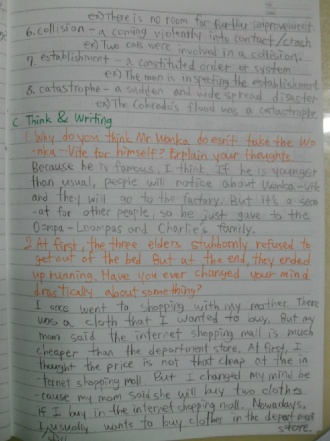 ex) There is no room for further improvement.
6. collision - a coming violently into contact/crash
ex) Two cars were involved in a collision.
7. establishment - a constituted order or system
ex) The man is inspecting the establishment
8. catastrophe - a sudden and wide spread disaster
ex) The Colorado's flood was a catastrophe
C. Think & Writing
1. Why do you think Mr. Wonka doesn't take the Wo
-nka-Vite for himself? Explain your thoughts.
Because he is famous, I think. If he is younger
than usual, people will notice about Wonka-Vite
and they will go to the factory. But it's a secr
-et for other people, so he just gave to the
Oompa-Loompas and Charlie's family.
2. At first, the three elders stubbornly refused to
get out of the bed. But at the end, they ended
up running. Have you ever changed your mind
drastically about something?
I once went to shopping with my mother. There
was a cloth that I wanted to buy. But my
mom said the internet shopping mall is much
cheaper than the department store. At first, I
thought the price is not that cheap at the in
-ternet shopping mall. But I changed my mind be
-cause my mom said she will buy two clothes
if I buy in the internet shopping mall. Nowadays,
I usually wants to buy clothes in the department
store.